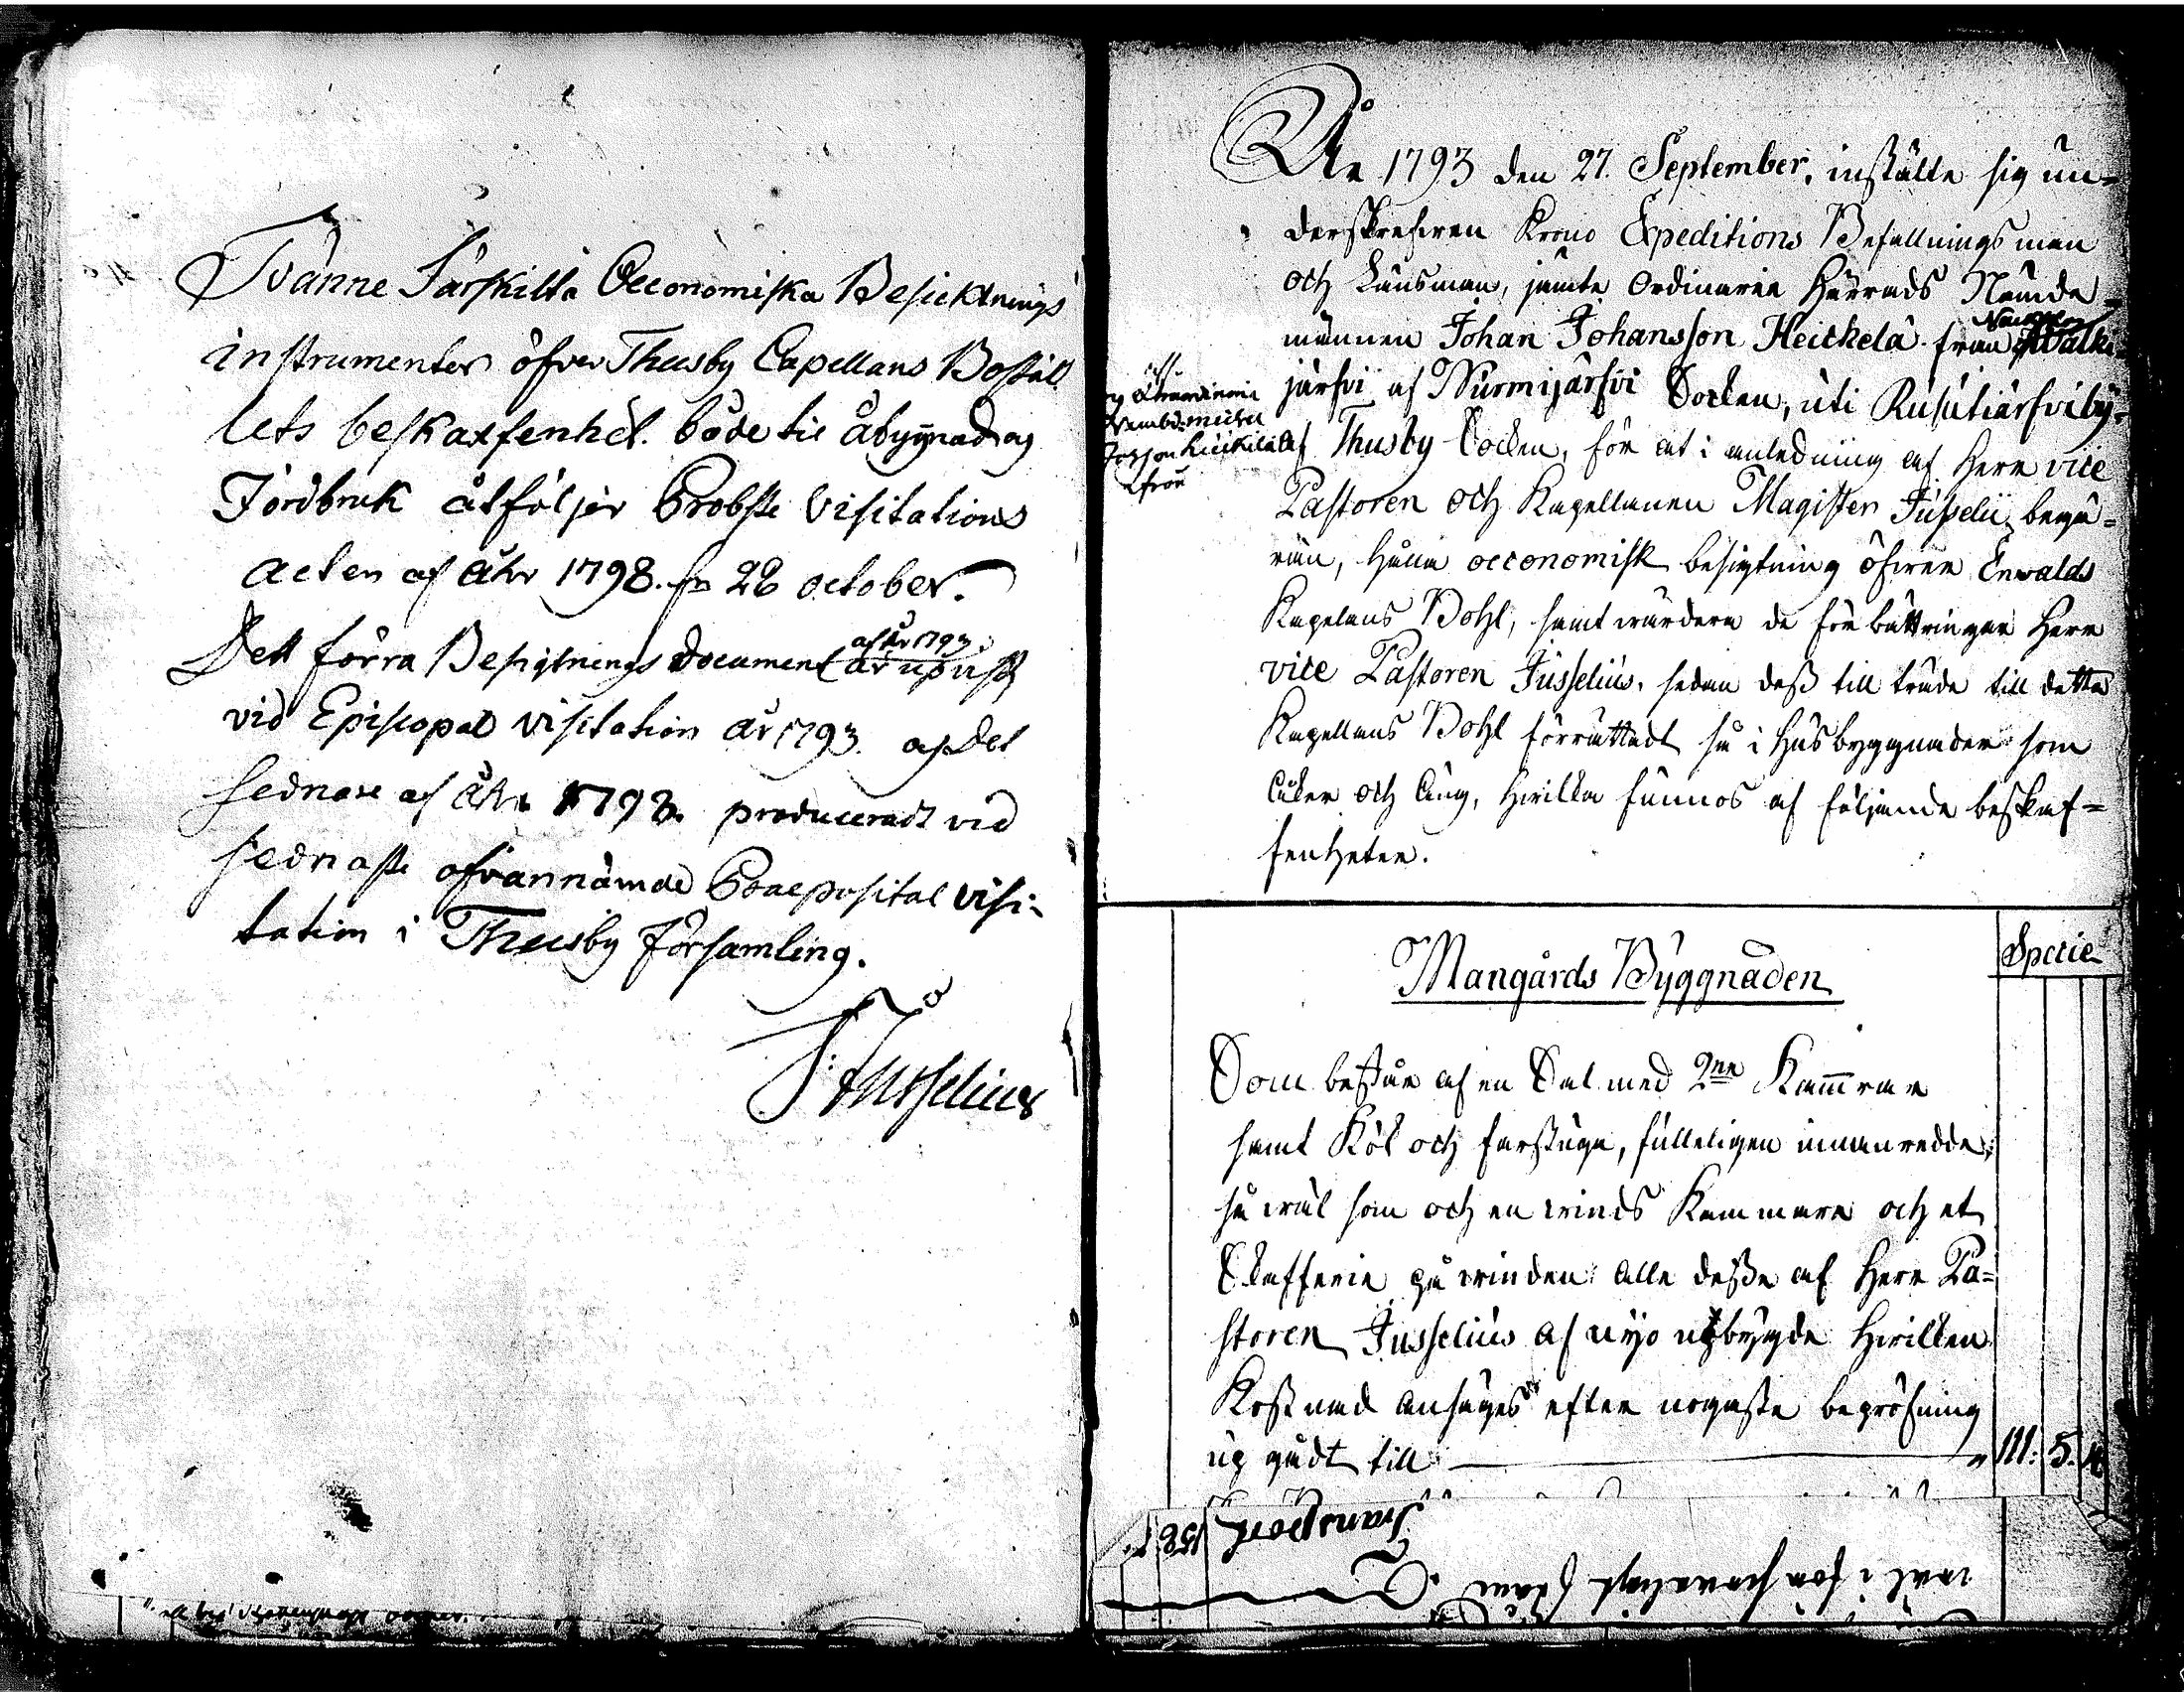 Tvänne Särskilta Oeconomiska Besicktnings
instrumenter öfver Thusby Capellans Bostäl
lets beskaffenhet både til åbyggnad och
Jordbruk åtföljer Probste Visitations
acten af åhr 1798. d. 26 october.
af år 1793
Dett förra Besigtnings document är upvist
vid Episcopal visitation år 1793. och det
sednare af åhr 1798. produceradt vid
sednaste ofvannämde Praeposital visi-
tation i Thusby församling.
J: Jusselius
År 1793 den 27. September, instälte sig un-
derskrefven Krono Expeditions Befallningsman
och Länsman, jämte Ordinarie Härads Nämde-
männen Johan Johansson Heickelä från Walki-
järfvi af Nurmijärfvi Socken, uti Rusutjärfvi by
af Thusby Socken, för at i anledning af Herr vice
Pastoren och Kapellanen Magister Jusselii begä-
ran, hålla oeconomisk besigtning öfver Enwalds
Kapelans Bohl, samt värdera de förbättringar Herr
vice Pastoren Jusselius, sedan dess tillträde till detta
Kapellans Bohl förrättadt så i Husbyggnader som
åker och äng, hvilka funnos af följande beskaf-
fenheter.
Specie
Mangårds Byggnaden
Som består af en Sal med 2ne Kamrar
samt Kök och farstuga, fulleligen innanredde,
så väl som och en vinds Kammare och et
Skafferie på vinden: alle desse af Herr Pa-
storen Jusselius af nyo upbygde hvilken
Kostnad anságes efter nogaste bepröfning
up gådt till " 111. 5.
158
Transport